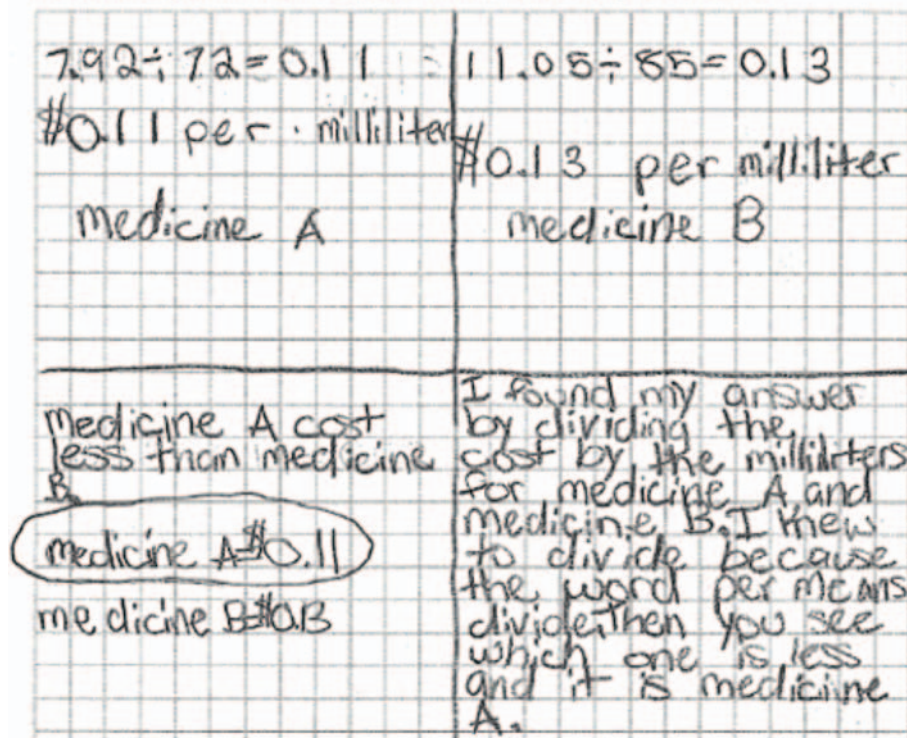 7.92÷72=0.11
$0.11 per milliliter
medicine A
11.05÷85=0.13
$0.13 per milliliter
medicine B
medicine A cost
less than medicine
B.
medicine A=$0.11
medicine B=$0.13
I found my answer
by dividing the
cost by the milliliters
for medicine A and
medicine B. I knew
to divide because
the word per means
divide. Then you see
which one is less
and it is medicine
A.